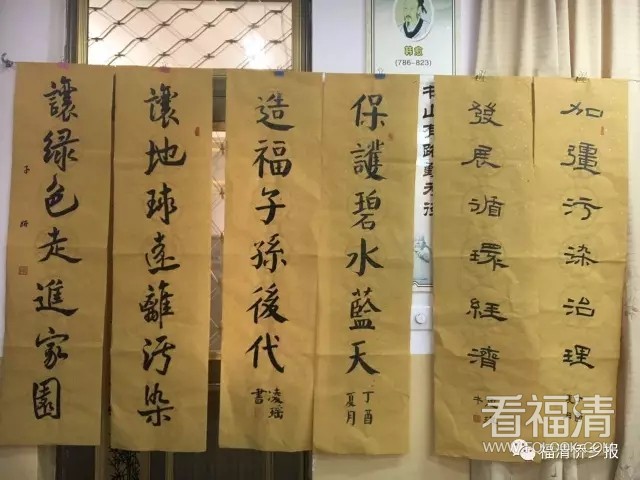 加强污染治理
發展循環經濟
保護碧水藍天
丁酉
夏月
造福子孫後代
凌瑶
書
讓地球遠離污染
讓绿色走進家園
韩愈
(786-823)
看福清
福清侨乡报